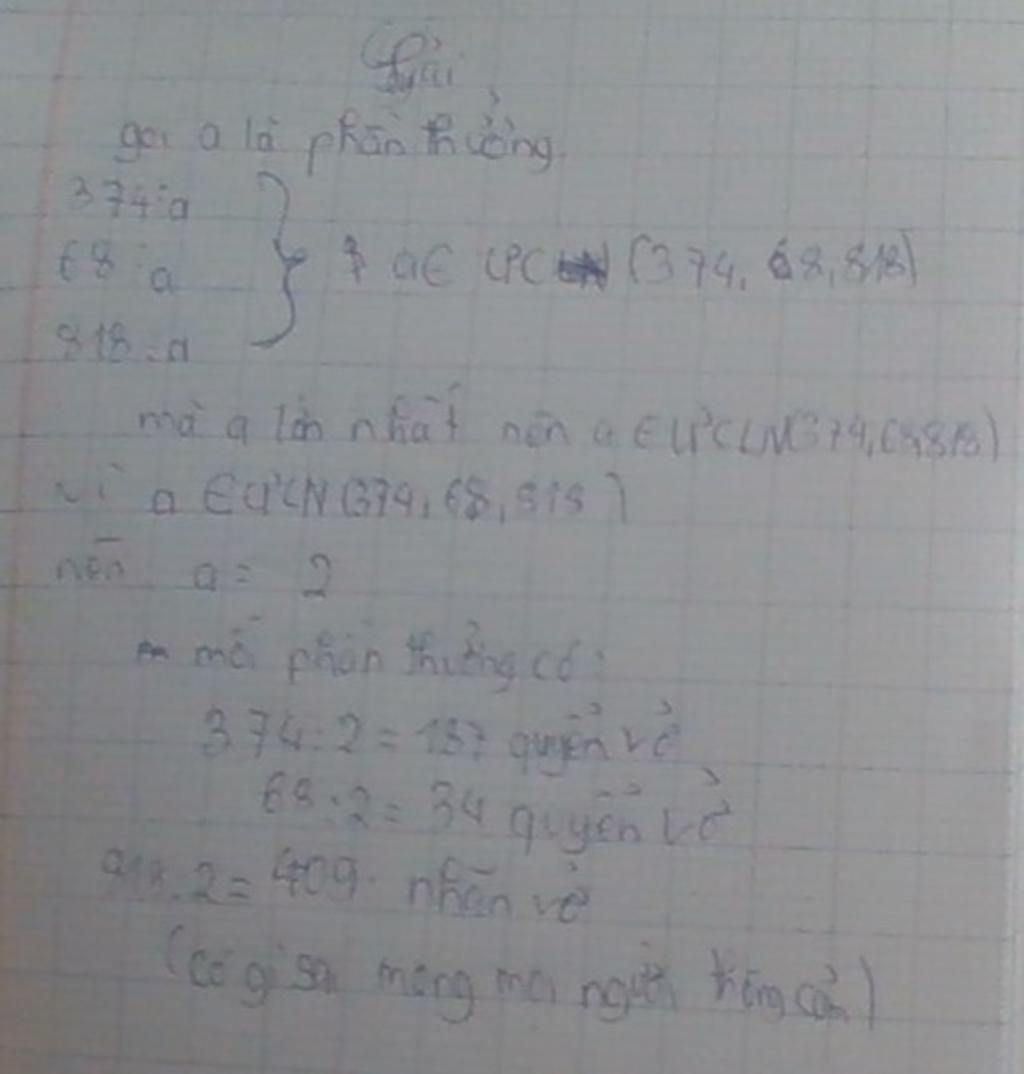 Giải
gọi a là phần thưởng
374:a
68:a
818:a
a∈ ƯC (374, 68, 818)
mà a lớn nhất nên a ∈ ƯCLN(374, 68, 818)
vì a ∈ ƯCLN (374, 68, 818)
nên a = 2
mỗi phần thưởng có:
374:2 = 187 quyển vở
68:2 = 34 quyển vở
818:2 = 409 nhãn vở
(có gì sai mong mọi người thông cảm)